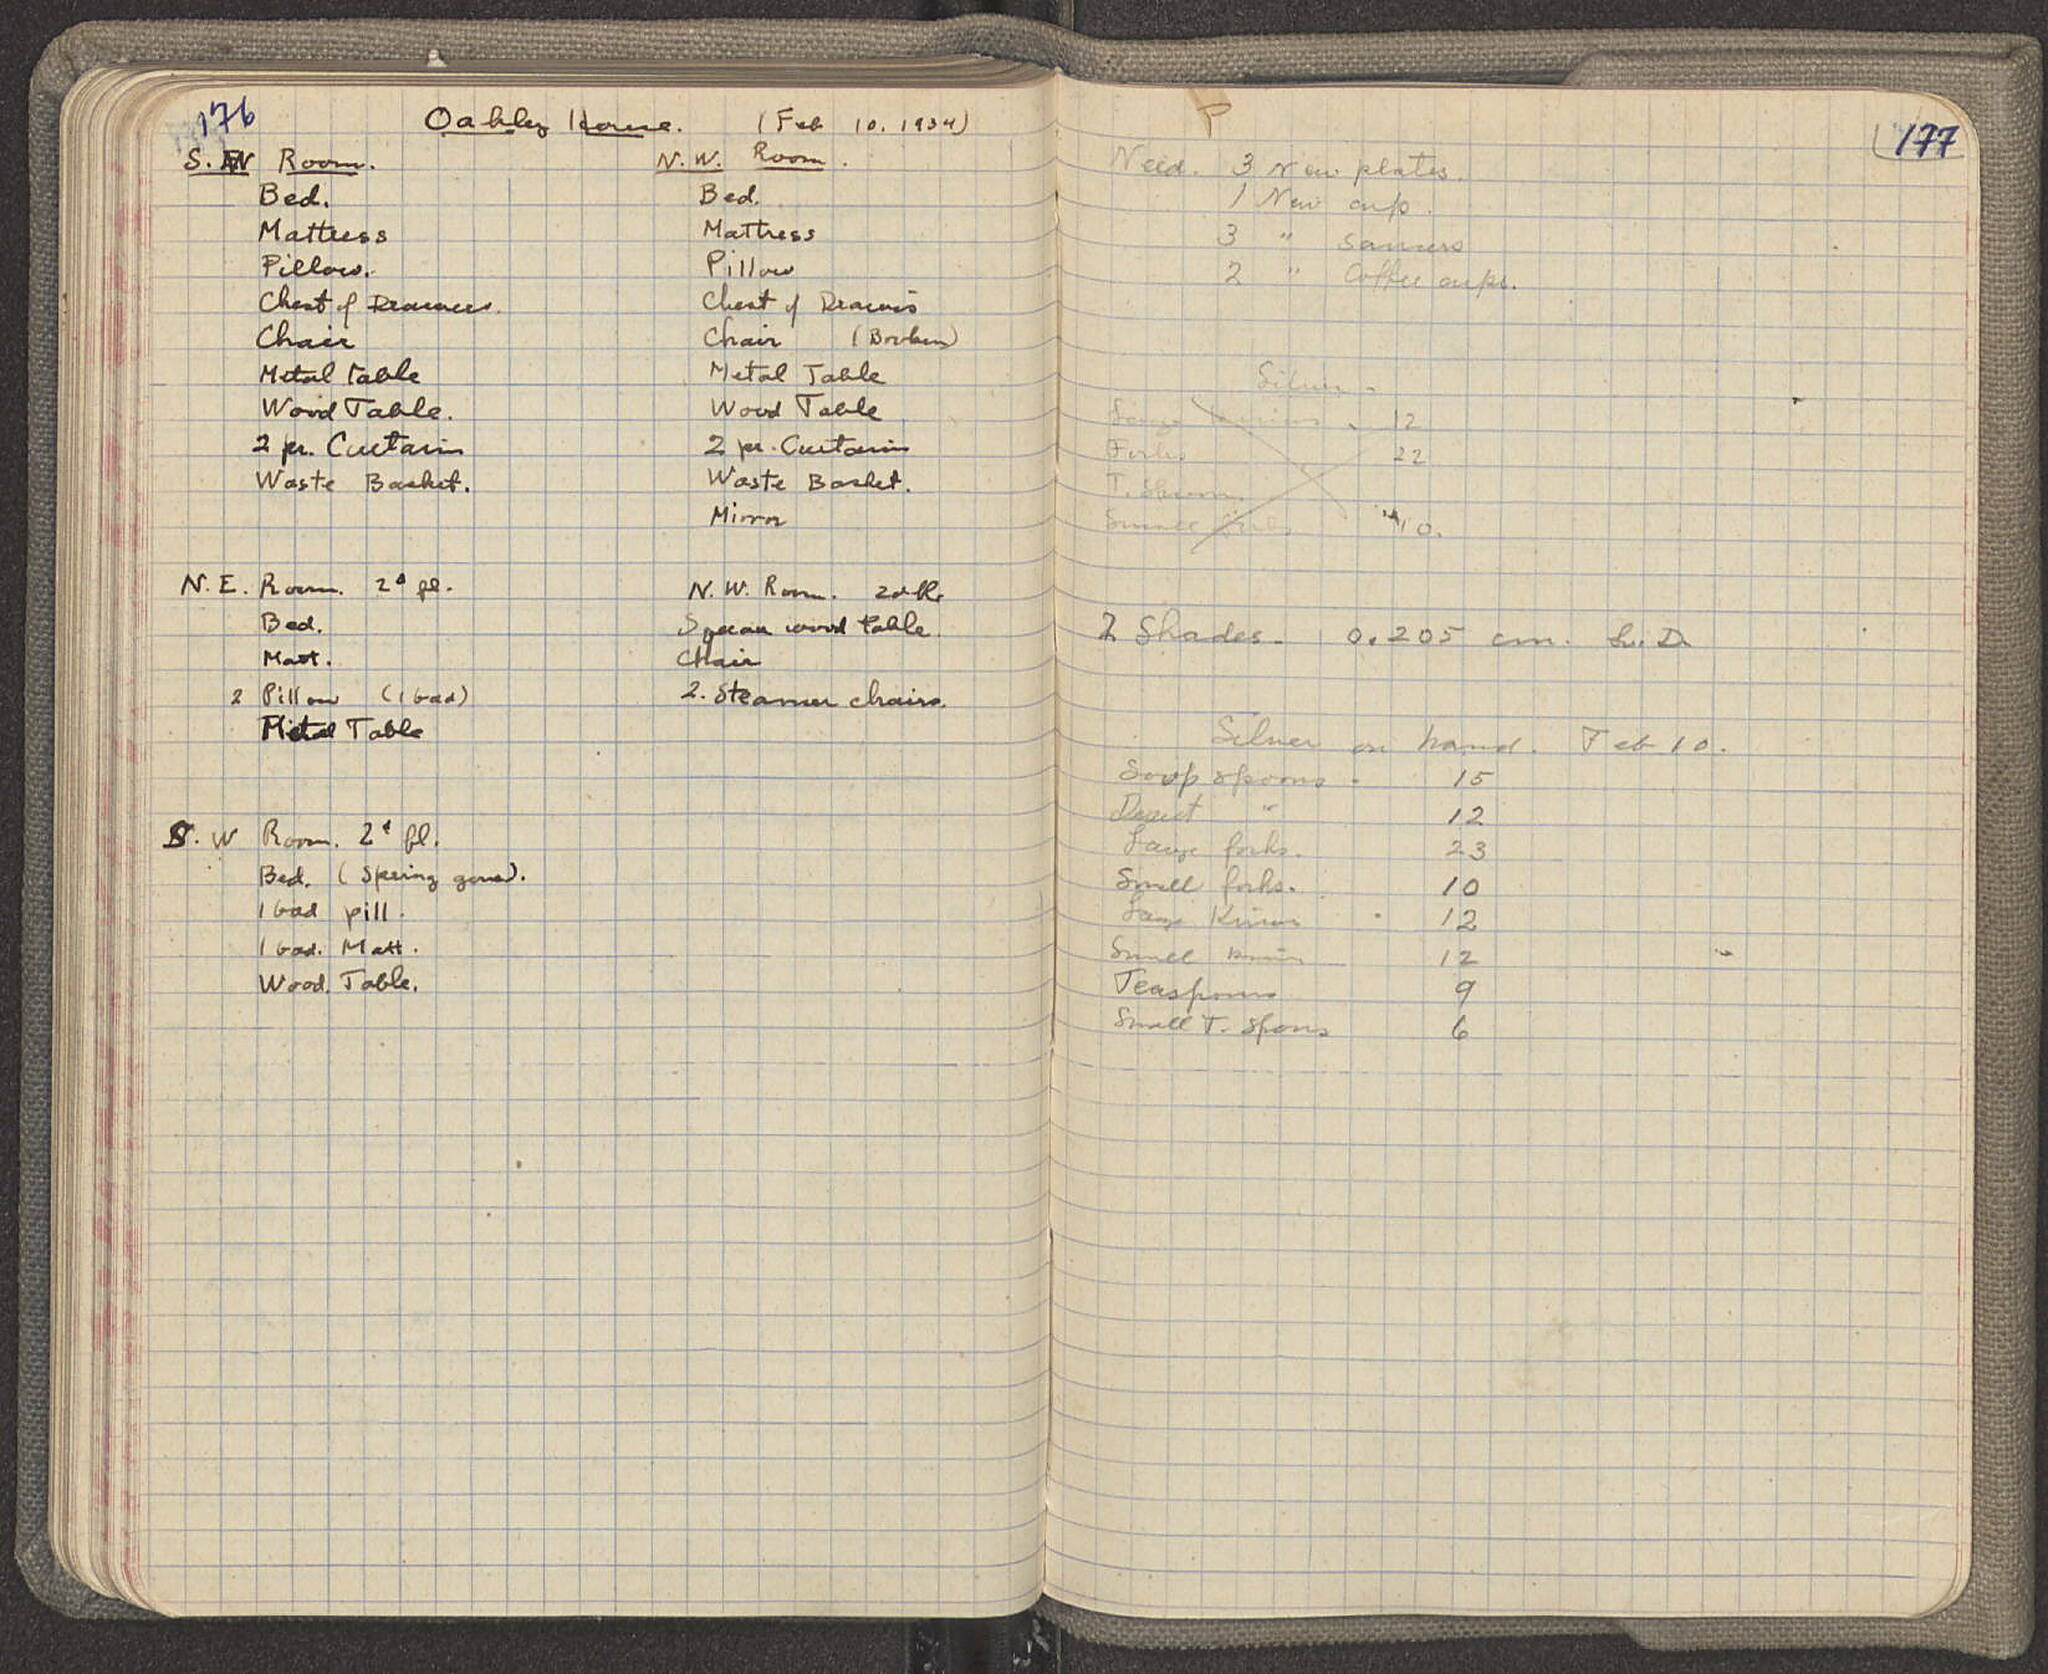 176
Oakley House. (Feb 10. 1934)
S. W Room.
Bed.
Mattress
Pillow.
Chest of Drawers.
Chair
Metal Table
Wood Table.
2 pr. Curtains
Waste Basket.
N.W. Room.
Bed.
Mattress
Pillow
Chest of Drawers
Chair (Broken)
Metal Table
Wood Table
2 pr. Curtains
Waste Basket.
Mirror
N.E. Room. 2d fl.
Bed.
Matt.
2 Pillow (1 bad)
Metal Table
N.W. Room. 2d fl.
wood table
Chair
2. Steamer chairs.
S. W Room. 2d fl.
Bed. (Spring gone).
1 bad pill.
1 bad. Matt.
Wood. Table.
177
Need. 3 New plates.
1 New cup.
3 " saucers
2 " Coffee cups.
Silver -
Large knives - 12
Forks 22
T. Spoon.
Small forks 10.
2 Shades - 0.205 cm.
Silver on hand. Feb 10.
Soup spoons - 15
Desert " 12
Large forks. 23
Small forks. 10
Large Knives 12
Small knives 12
Teaspoons 9
Small T. Spoons 6